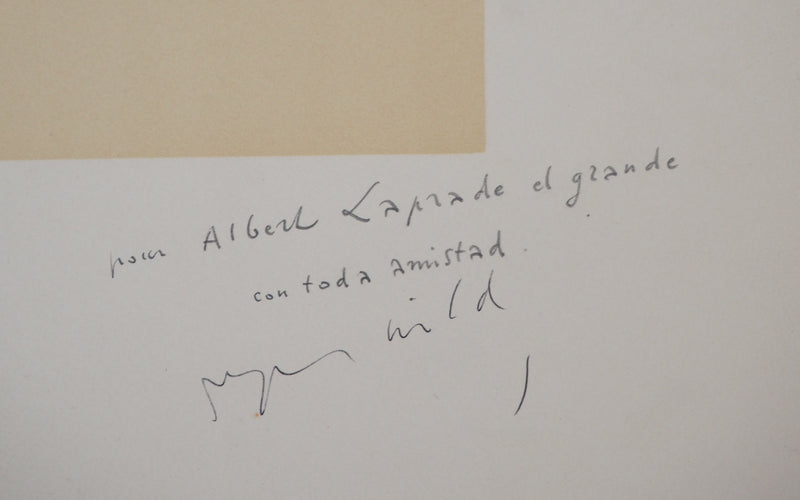 pour Albert Laprade el grande
con toda amistad.
wild